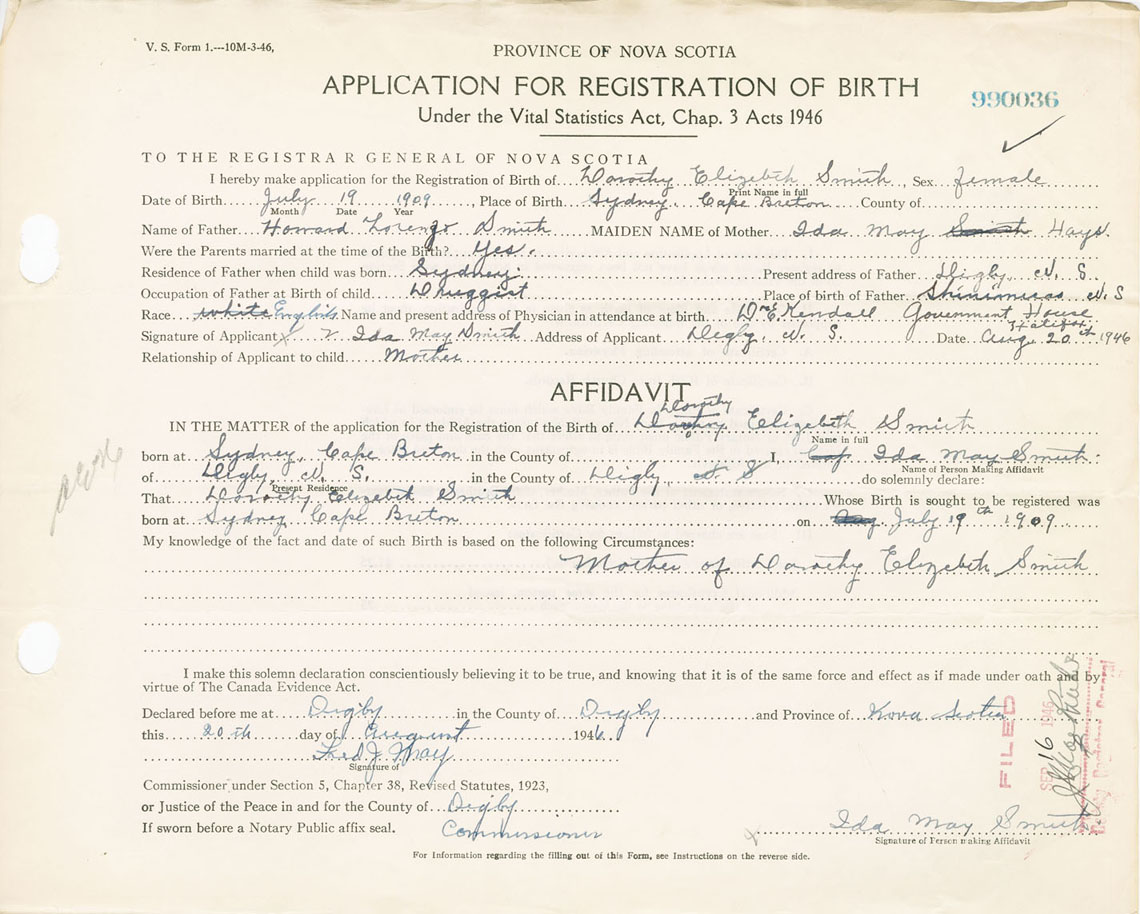 V. S. Form 1.---10M-3-46,
PROVINCE OF NOVA SCOTIA
APPLICATION FOR REGISTRATION OF BIRTH
990036
Under the Vital Statistics Act, Chap. 3 Acts 1946
TO THE REGISTRAR GENERAL OF NOVA SCOTIA
I hereby make application for the Registration of Birth of Dorothy Elizebeth Smith, Sex female
Print Name in full
Date of Birth July 19 1909, Place of Birth Sydney, Cape Breton County of
Month Date Year
Name of Father Howard Lorenzo Smith MAIDEN NAME of Mother Ida May Smith Hays.
Were the Parents married at the time of the Birth? Yes.
Residence of Father when child was born Sydney. Present address of Father Digby, N. S.
Occupation of Father at Birth of child Druggist Place of birth of Father N. S
Race white English Name and present address of Physician in attendance at birth Dr E. Kendall Government House
Halifax,
Signature of Applicant x Ida May Smith Address of Applicant Digby, N. S. Date Aug. 20th 1946
Relationship of Applicant to child Mother
AFFIDAVIT
Dorothy
IN THE MATTER of the application for the Registration of the Birth of Elizebeth Smith
Name in full
born at Sydney, Cape Breton in the County of I, Ida May Smith.
Name of Person Making Affidavit
of Digby, N. S. in the County of Digby, N S do solemnly declare:
Present Residence
That Dorothy Elizebeth Smith Whose Birth is sought to be registered was
born at Sydney Cape Breton on Aug July 19th 1909
My knowledge of the fact and date of such Birth is based on the following Circumstances:
Mother of Dorothy Elizebeth Smith
I make this solemn declaration conscientiously believing it to be true, and knowing that it is of the same force and effect as if made under oath and by
virtue of The Canada Evidence Act.
Declared before me at Digby in the County of Digby and Province of Nova Scotia
this 20th day of August 1946
Fred J. May
Signature of
Commissioner under Section 5, Chapter 38, Revised Statutes, 1923,
or Justice of the Peace in and for the County of Digby
If sworn before a Notary Public affix seal. Commissioner
x Ida May Smith
Signature of Person making Affidavit
For Information regarding the filling out of this Form, see Instructions on the reverse side.
FILED
SEP 16 1946
Deputy Registrar General